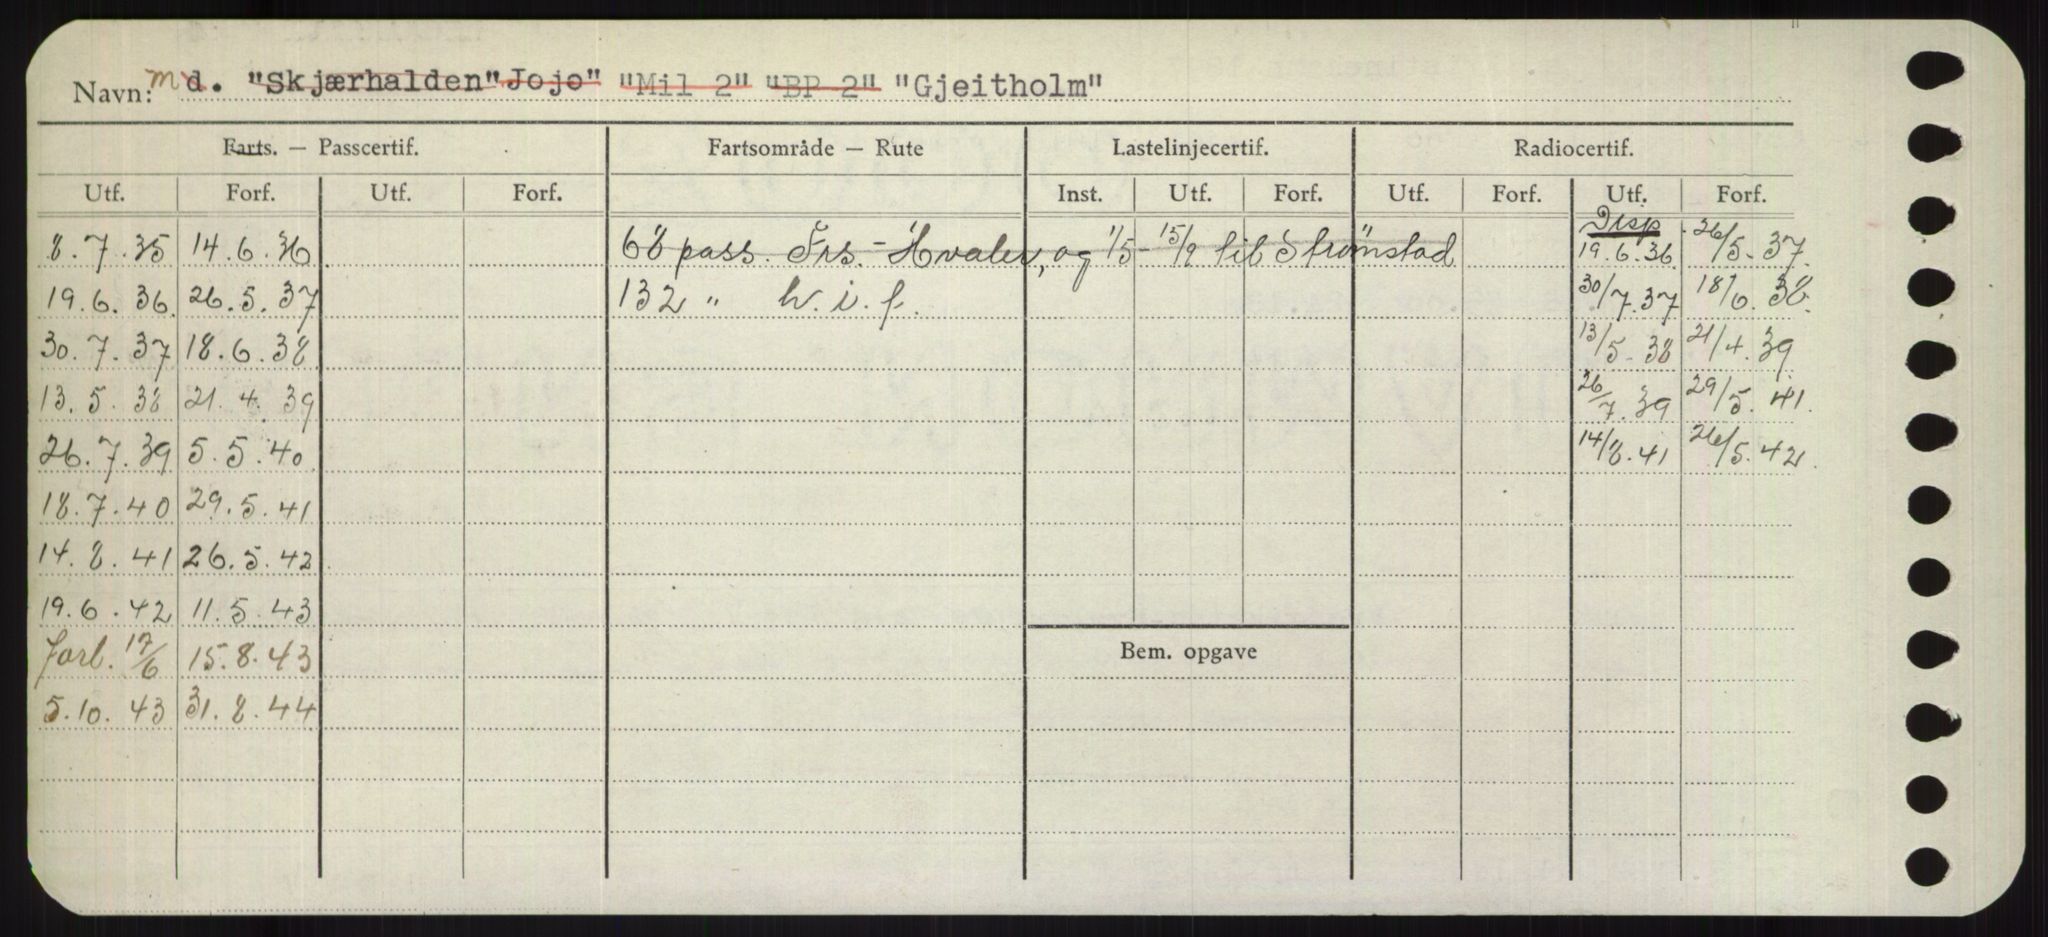 Navn: Md. "Skjærhalden" Jojo" "Mil 2" "BP 2" "Gjeitholm"
Farts. — Passcertif. Fartsområde — Rute Lastelinjecertif. Radiocertif.
Utf. Forf. Utf. Forf. Inst. Utf. Forf. Utf. Forf. Utf. Forf.
Disp
8.7.35 14.6.36 68 pass. Frs. - Hvaler, og 1/5 - 15/9 til Strömstad 19.6.36 26/5-37.
19.6.36. 26.5.37 132 " h.i.f. 30/7.37 18/6.38.
30.7.37 18.6.38 13/5-38 21/4.39
13.5.38 21.4.39 26/7.39 29/5.41.
26.7.39 5.5.40 14/8.41 26/5.42.
18.7.40 29.5.41
14.8.41 26.5.42
19.6.42 11.5.43
Forl. 17/6 15.8.43 Bem. opgave
5.10.43 31.8.44